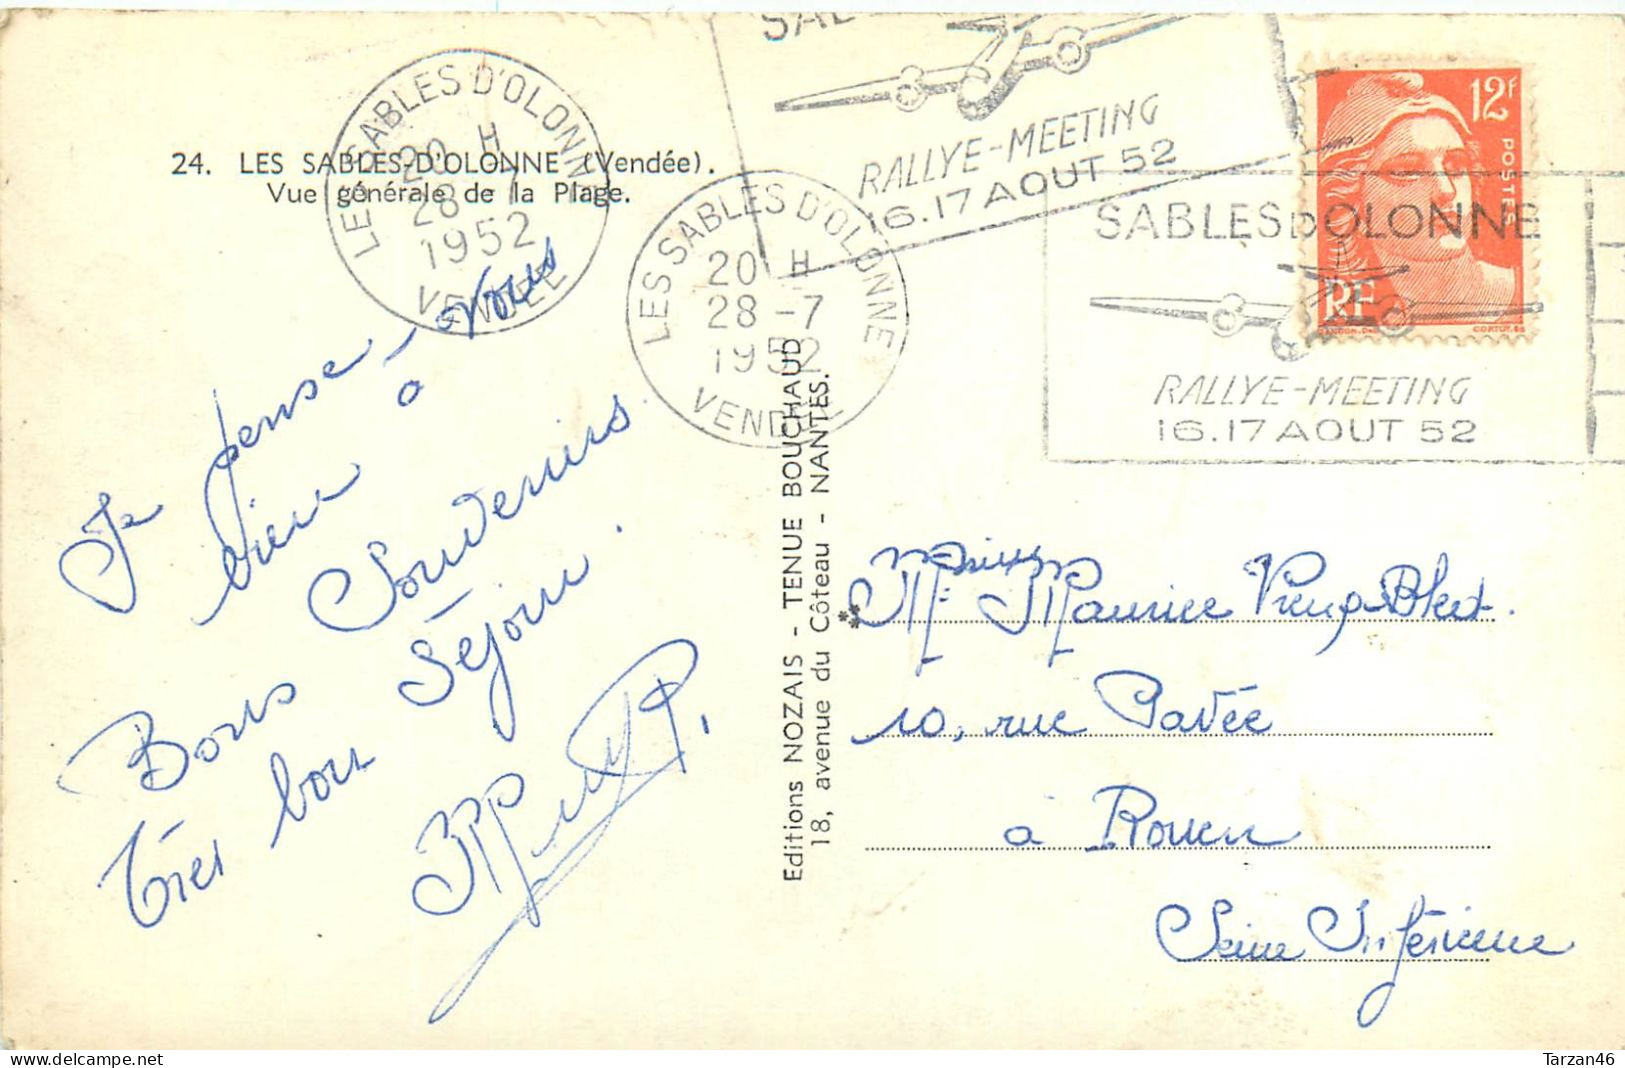 24. LES SABLES-D'OLONNE (Vendée).
Vue générale de la Plage.
LES SABLES D'OLONNE
20 H
28 -7
1952
VENDEE
LES SABLES D'OLONNE
20 H
28 -7
1952
VENDEE
RALLYE-MEETING
16.17 AOUT 52
SABLES D'OLONNE
RALLYE-MEETING
16.17 AOUT 52
12F
POSTES
RF
Je pense à vous
bien
Souvenirs.
Bons Séjour.
Très bon
Editions NOZAIS - TENUE BOUCHAUD
18, avenue du Côteau - NANTES.
Maurice
10, rue Pavée
à Rouen
Seine Inférieure
Tarzan46